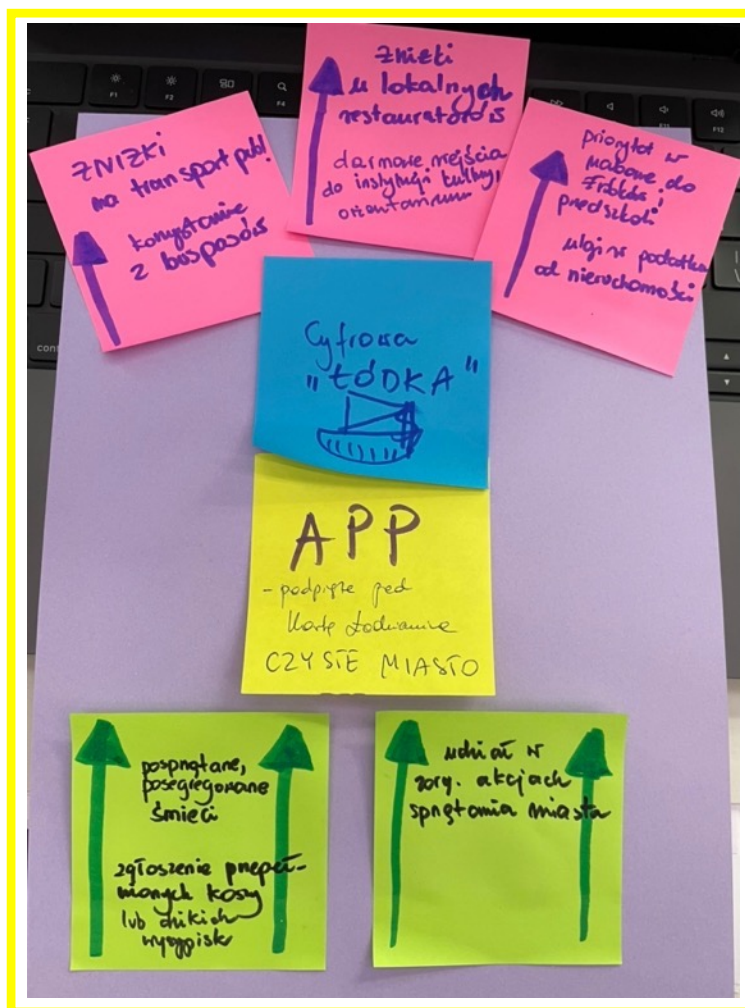 ZNIZKI
na transport publ.
korzystanie
z buspasów
Zniżki
u lokalnych
restauratorów
darmowe wejścia
do instytucji kultury,
orientarium
priorytet w
naborze do
żłobków i
przedszkoli
ulgi w podatku
od nieruchomości
Cyfrowa
"ŁÓDKA"
APP
- podpięte pod
Kartę Łodzianina
CZYSTE MIASTO
posprzątane,
posegregowane
śmieci
zgłoszenie przepeł-
nionych koszy
lub dzikich
wysypisk
udział w
zorg. akcjach
sprzątania miasta